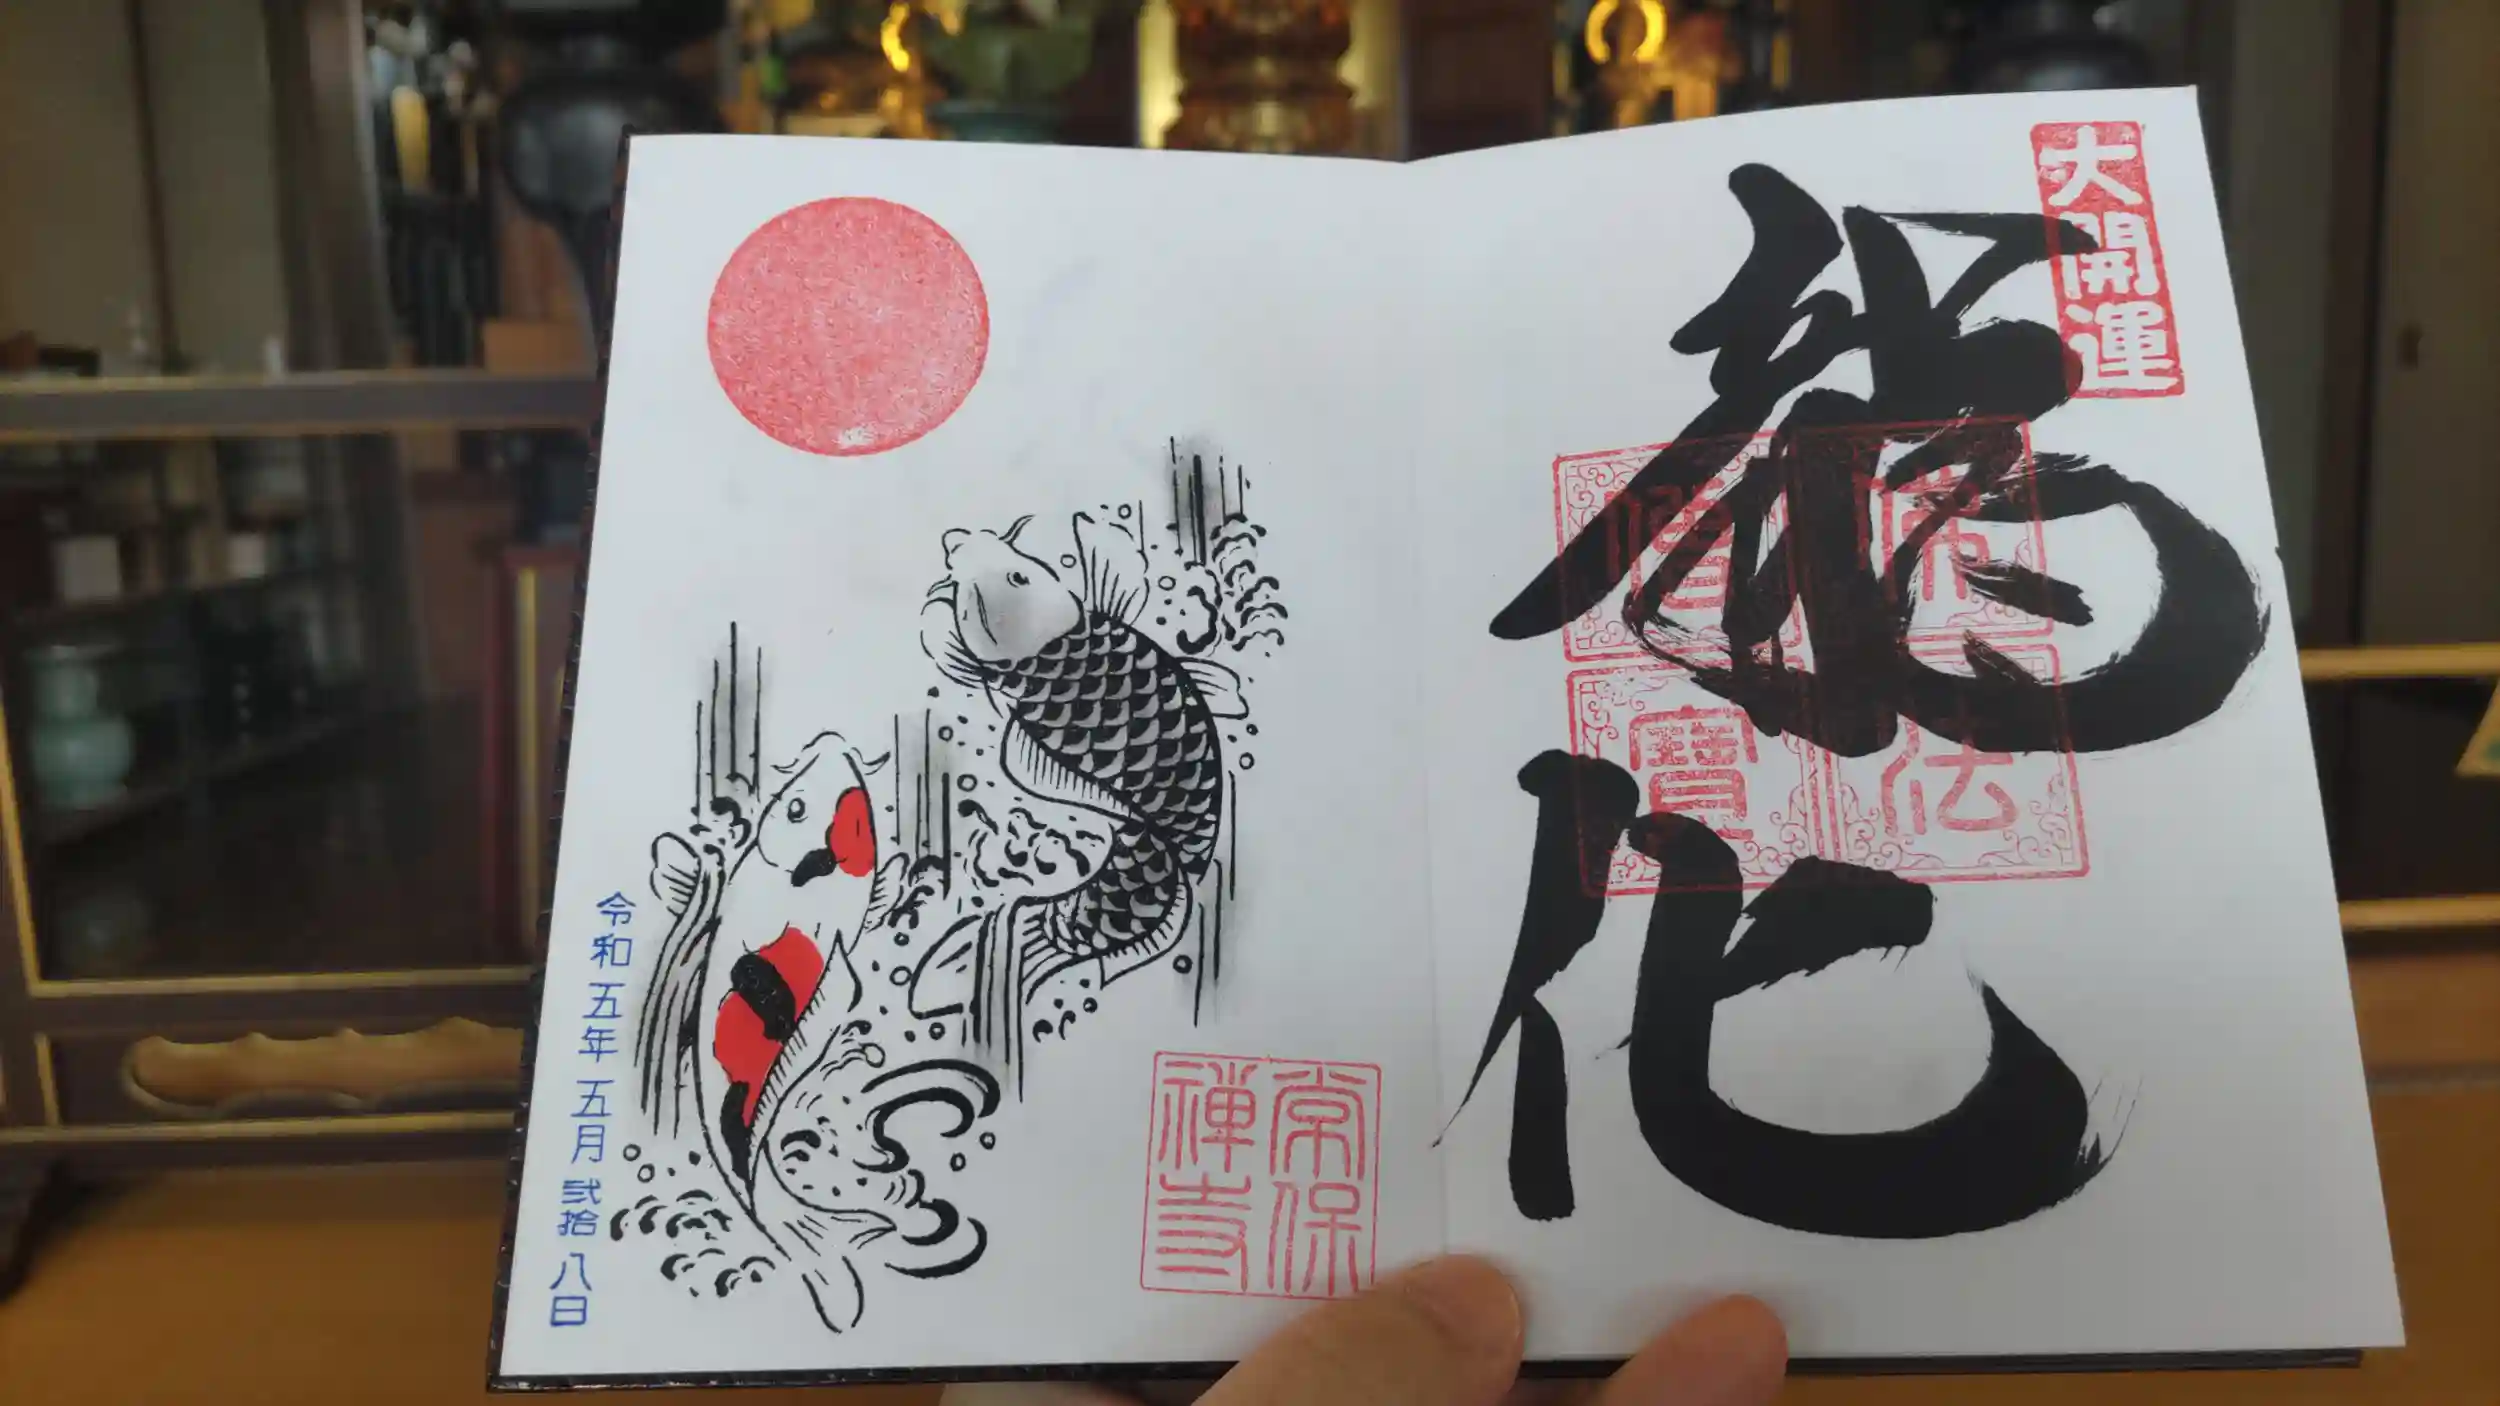 大開運
龍化
佛法
僧寶
常保
禅寺
令和五年五月弐拾八日